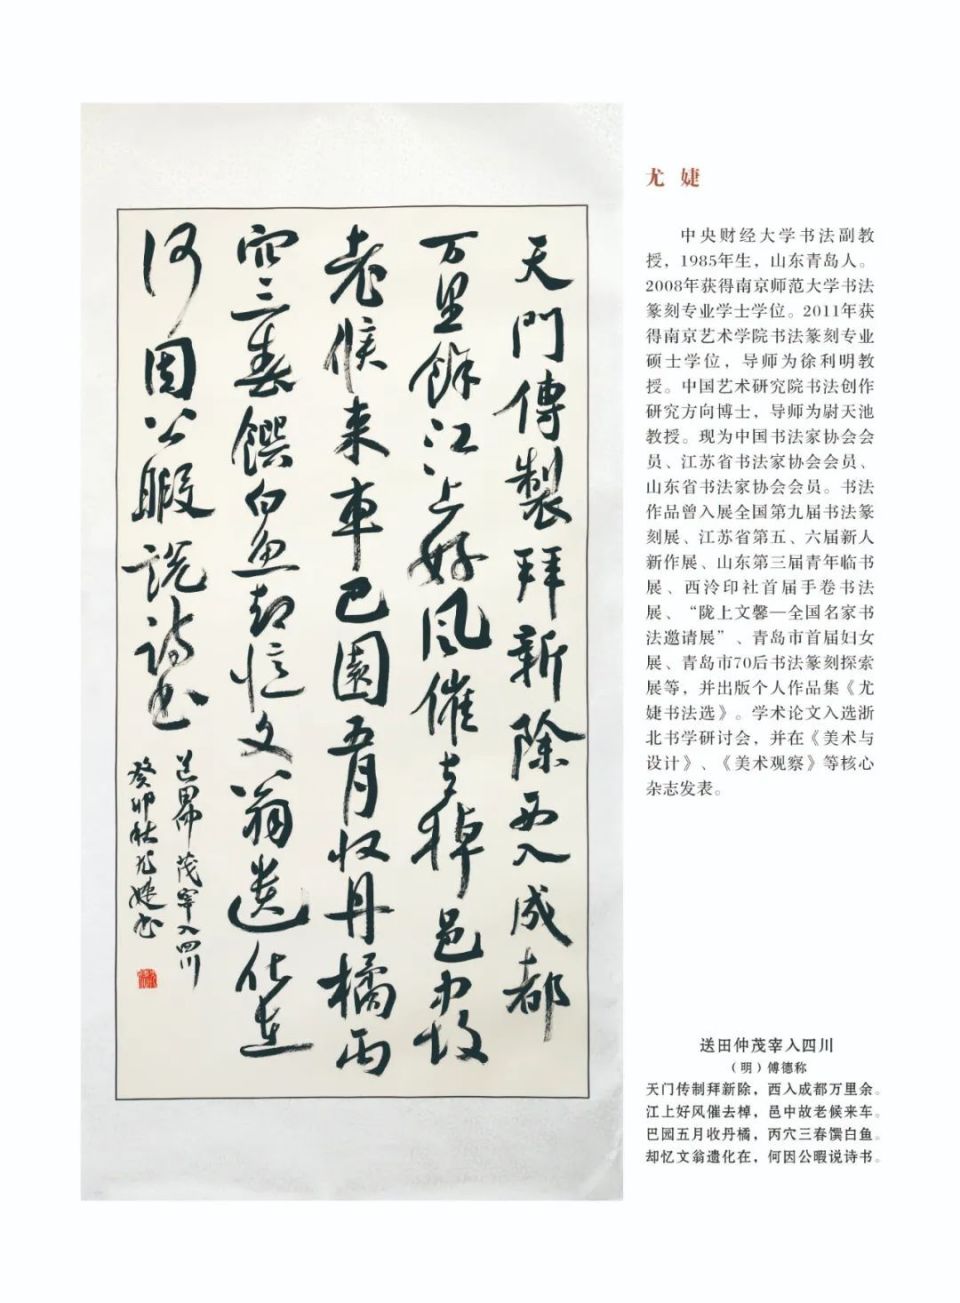 天門傳製拜新除西入成都
万里餘江上好风催去棹邑中故
老候来車巴園五月收丹橘丙
穴三春饌白鱼却忆文翁遗化在
何因公暇説詩书
送田仲茂宰入四川
癸卯秋尤婕书
尤 婕
中央财经大学书法副教
授，1985年生，山东青岛人。
2008年获得南京师范大学书法
篆刻专业学士学位。2011年获
得南京艺术学院书法篆刻专业
硕士学位，导师为徐利明教
授。中国艺术研究院书法创作
研究方向博士，导师为尉天池
教授。现为中国书法家协会会
员、江苏省书法家协会会员、
山东省书法家协会会员。书法
作品曾入展全国第九届书法篆
刻展、江苏省第五、六届新人
新作展、山东第三届青年临书
展、西泠印社首届手卷书法
展、“陇上文馨—全国名家书
法邀请展”、青岛市首届妇女
展、青岛市70后书法篆刻探索
展等，并出版个人作品集《尤
婕书法选》。学术论文入选浙
北书学研讨会，并在《美术与
设计》、《美术观察》等核心
杂志发表。
送田仲茂宰入四川
（明）傅德称
天门传制拜新除，西入成都万里余。
江上好风催去棹，邑中故老候来车。
巴园五月收丹橘，丙穴三春馔白鱼。
却忆文翁遗化在，何因公暇说诗书。